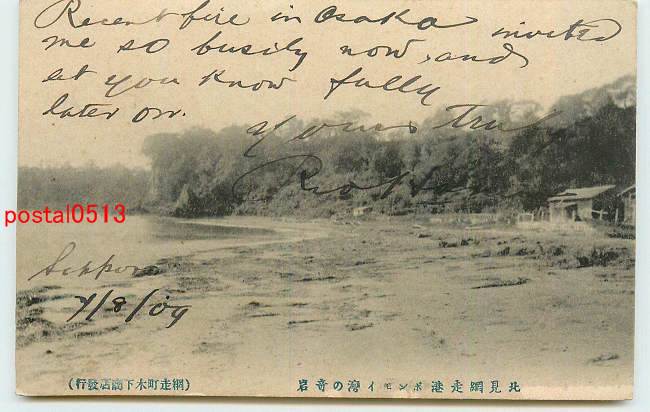 Recent fire in Osaka invited
me so busily now, and
let you know fully
later on.
Yours Truly
postal0513
Sapporo
7/8/09
北見網走港ポンモイ灣の奇岩
(網走町木下商店發行)